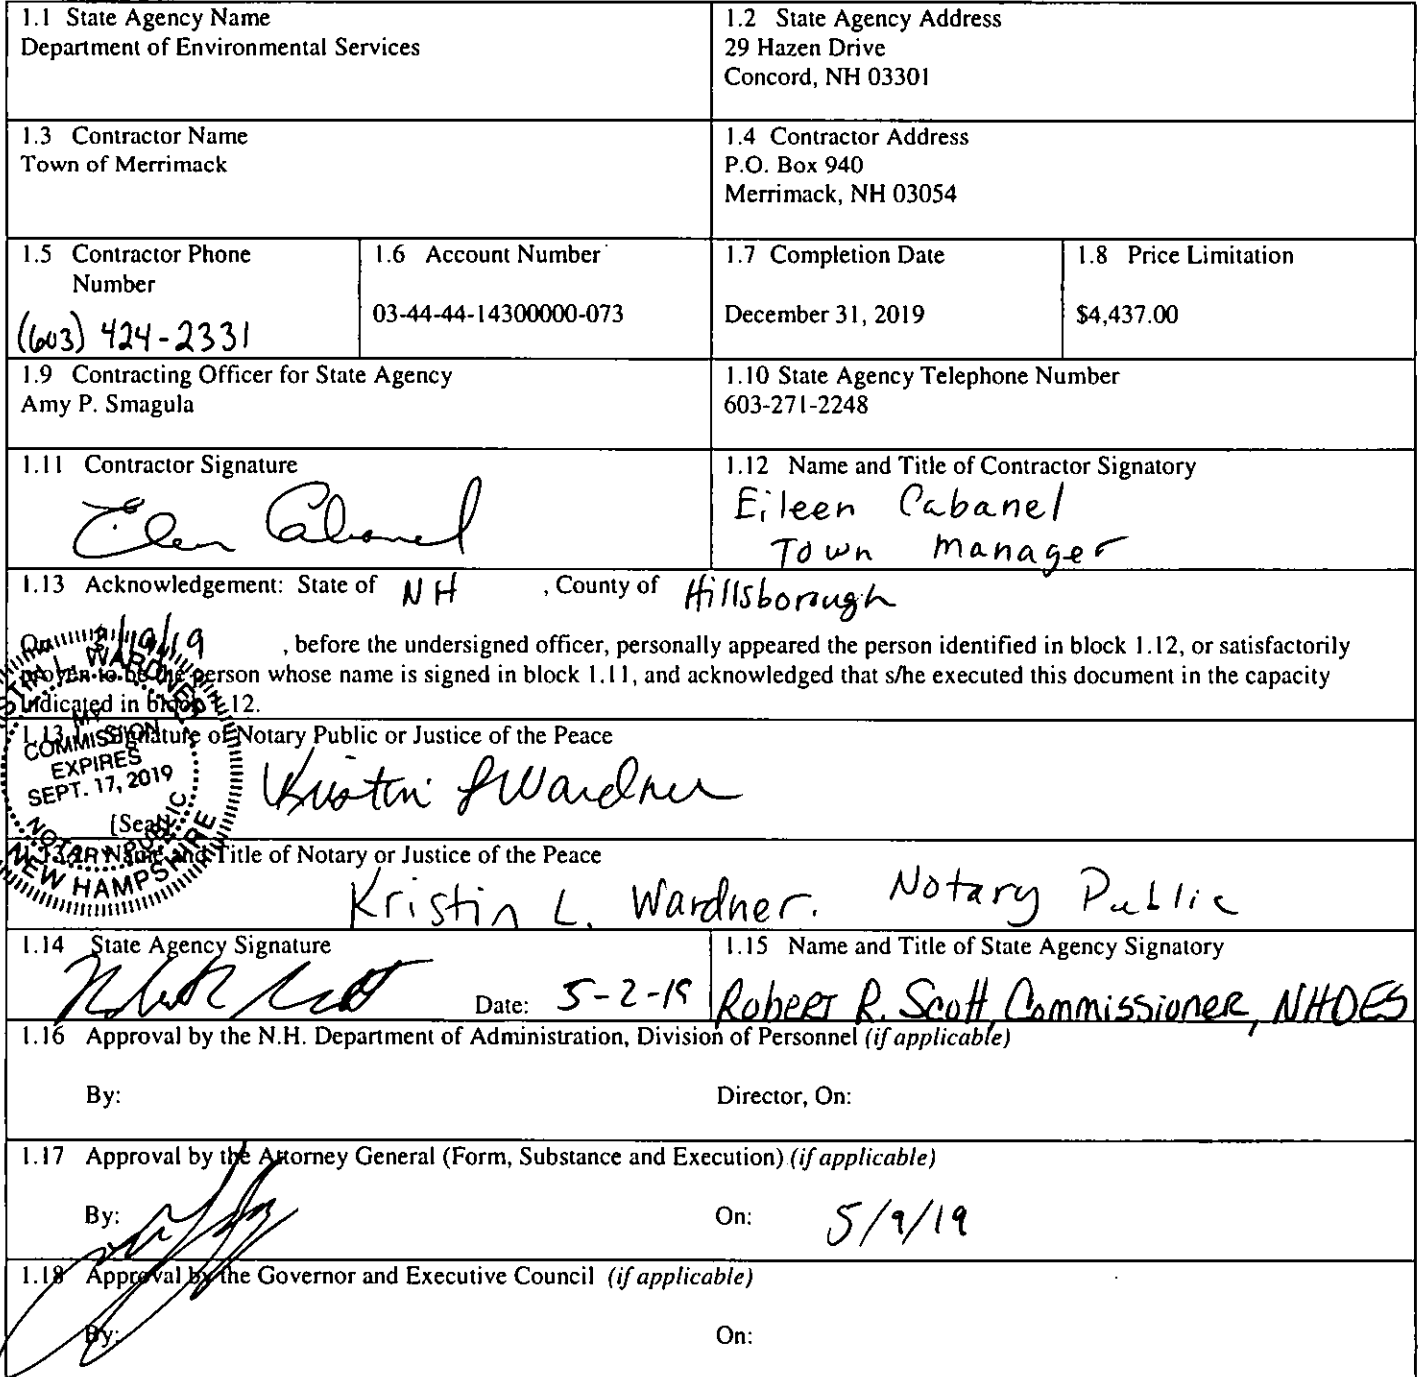 1.1 State Agency Name
Department of Environmental Services
1.2 State Agency Address
29 Hazen Drive
Concord, NH 03301
1.3 Contractor Name
Town of Merrimack
1.4 Contractor Address
P.O. Box 940
Merrimack, NH 03054
1.5 Contractor Phone
Number
(603) 424-2331
1.6 Account Number
03-44-44-14300000-073
1.7 Completion Date
December 31, 2019
1.8 Price Limitation
$4,437.00
1.9 Contracting Officer for State Agency
Amy P. Smagula
1.10 State Agency Telephone Number
603-271-2248
1.11 Contractor Signature
1.12 Name and Title of Contractor Signatory
Eileen Cabanel
Town Manager
1.13 Acknowledgement: State of NH , County of Hillsborough
On , before the undersigned officer, personally appeared the person identified in block 1.12, or satisfactorily
proven to be the person whose name is signed in block 1.11, and acknowledged that s/he executed this document in the capacity
indicated in block 1.12.
1.13.1 Signature of Notary Public or Justice of the Peace
Kristin L Wardner
WARDNER
MY
COMMISSION
EXPIRES
SEPT. 17, 2019
NOTARY PUBLIC
NEW HAMPSHIRE
[Seal]
1.13.2 Name and Title of Notary or Justice of the Peace
Kristin L. Wardner. Notary Public
1.14 State Agency Signature
Date: 5-2-19
1.15 Name and Title of State Agency Signatory
Robert R. Scott, Commissioner, NHDES
1.16 Approval by the N.H. Department of Administration, Division of Personnel (if applicable)
By: Director, On:
1.17 Approval by the Attorney General (Form, Substance and Execution) (if applicable)
By: On: 5/9/19
1.18 Approval by the Governor and Executive Council (if applicable)
By: On: